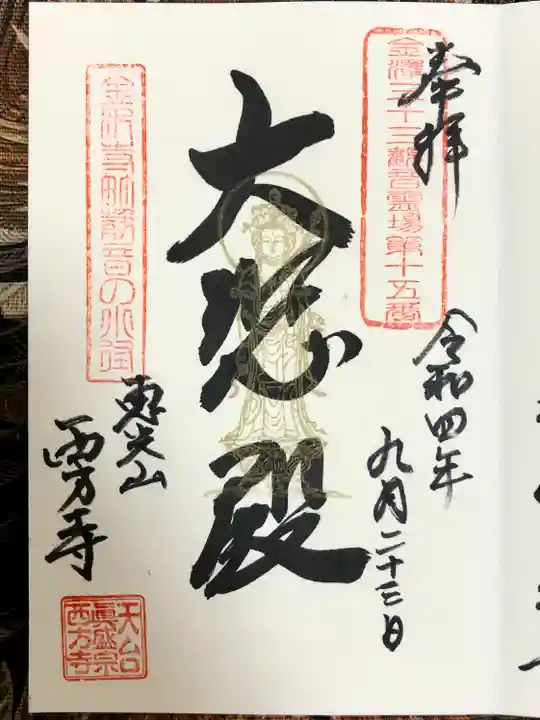 奉拝
金澤三十三観音霊場第十五番
令和四年
九月二十三日
大悲殿
金沢寺町観音の小径
恵光山
西方寺
天台
眞盛宗
西方寺